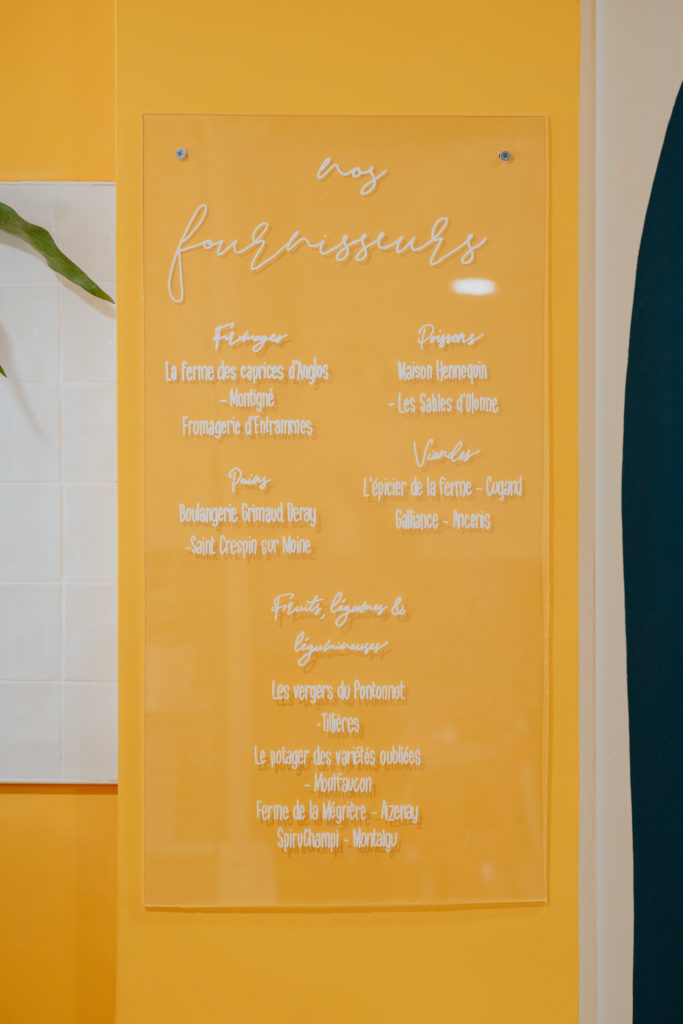 nos
fournisseurs
Fromages
La ferme des caprices d'Anglos
- Montigné
Fromagerie d'Entrammes
Pains
Boulangerie Grimaud Deray
-Saint Crespin sur Moine
Poissons
Maison Hennequin
- Les Sables d'Olonne
Viandes
L'épicier de la ferme - Cugand
Galliance - Ancenis
Fruits, légumes &
légumineuses
Les vergers du Pontonnet
-Tillières
Le potager des variétés oubliées
- Montfaucon
Ferme de la Mégrière - Azenay
SpiruChampi - Montaigu